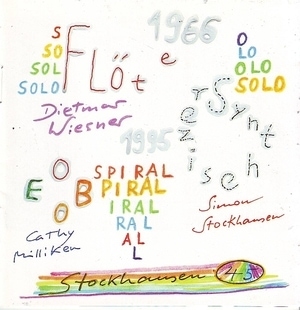 1966
S
SO
SOL
SOLO
FLÖte
O
LO
OLO
SOLO
Dietmar
Wiesner
Synthesizer
1995
OBOE
SPIRAL
PIRAL
IRAL
RAL
AL
L
Simon
Stockhausen
Cathy
Milliken
Stockhausen 45